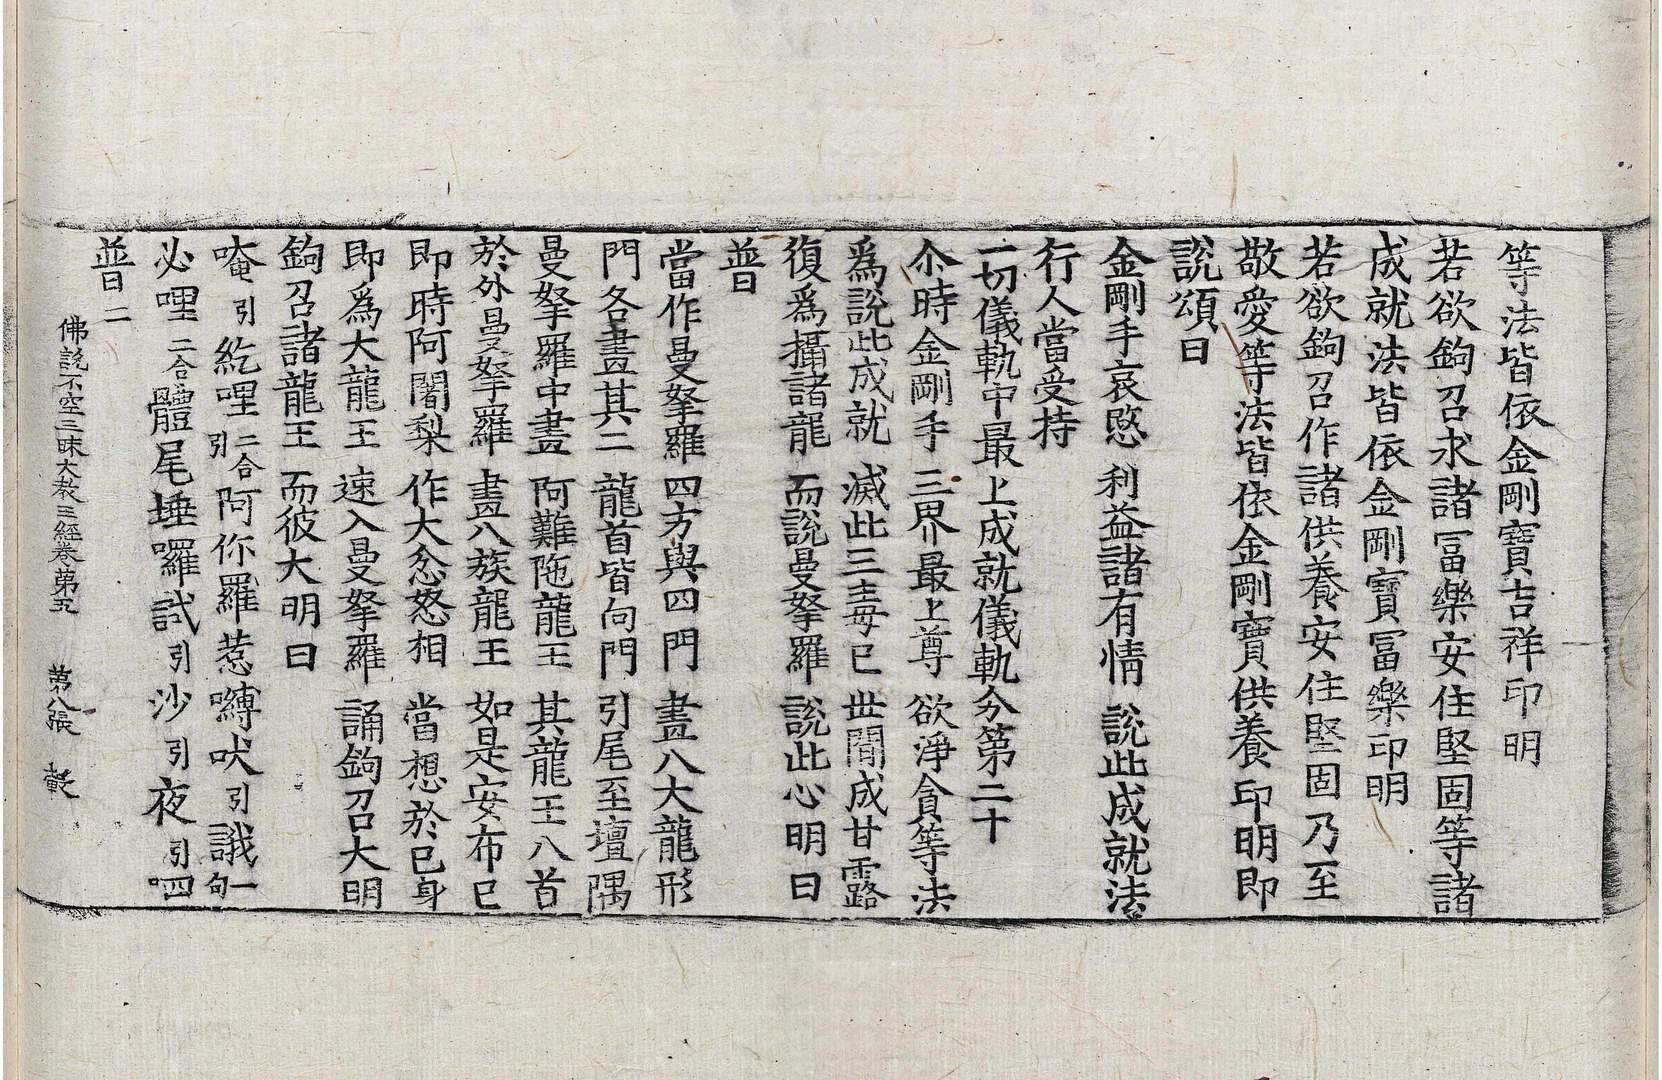 等法皆依金剛寶吉祥印明
若欲鉤召求諸冨樂安住堅固等諸
成就法皆依金剛寶冨樂印明
若欲鉤召作諸供養安住堅固乃至
敬愛等法皆依金剛寶供養印明即
說頌曰
金剛手哀愍 利益諸有情 說此成就法
行人當受持
一切儀軌中最上成就儀軌分第二十
尒時金剛手 三界最上尊 欲淨貪等法
爲說此成就 滅此三毒已 世閒成甘露
復爲攝諸龍 而說曼拏羅 說此心明曰
普
當作曼拏羅 四方與四門 畫八大龍形
門各畫其二 龍首皆向門 引尾至壇隅
曼拏羅中畫 阿難陁龍王 其龍王八首
於外曼拏羅 畫八族龍王 如是安布已
即時阿闍梨 作大忿怒相 當想於已身
即爲大龍王 速入曼拏羅 誦鉤召大明
鉤召諸龍王 而彼大明曰
唵引紇哩二合引阿你羅惹嚩吠引誐一句
必哩二合體尾埵囉試引沙引夜引呬
普二
佛說不空三昧大教王經卷第五 第八張 㲉